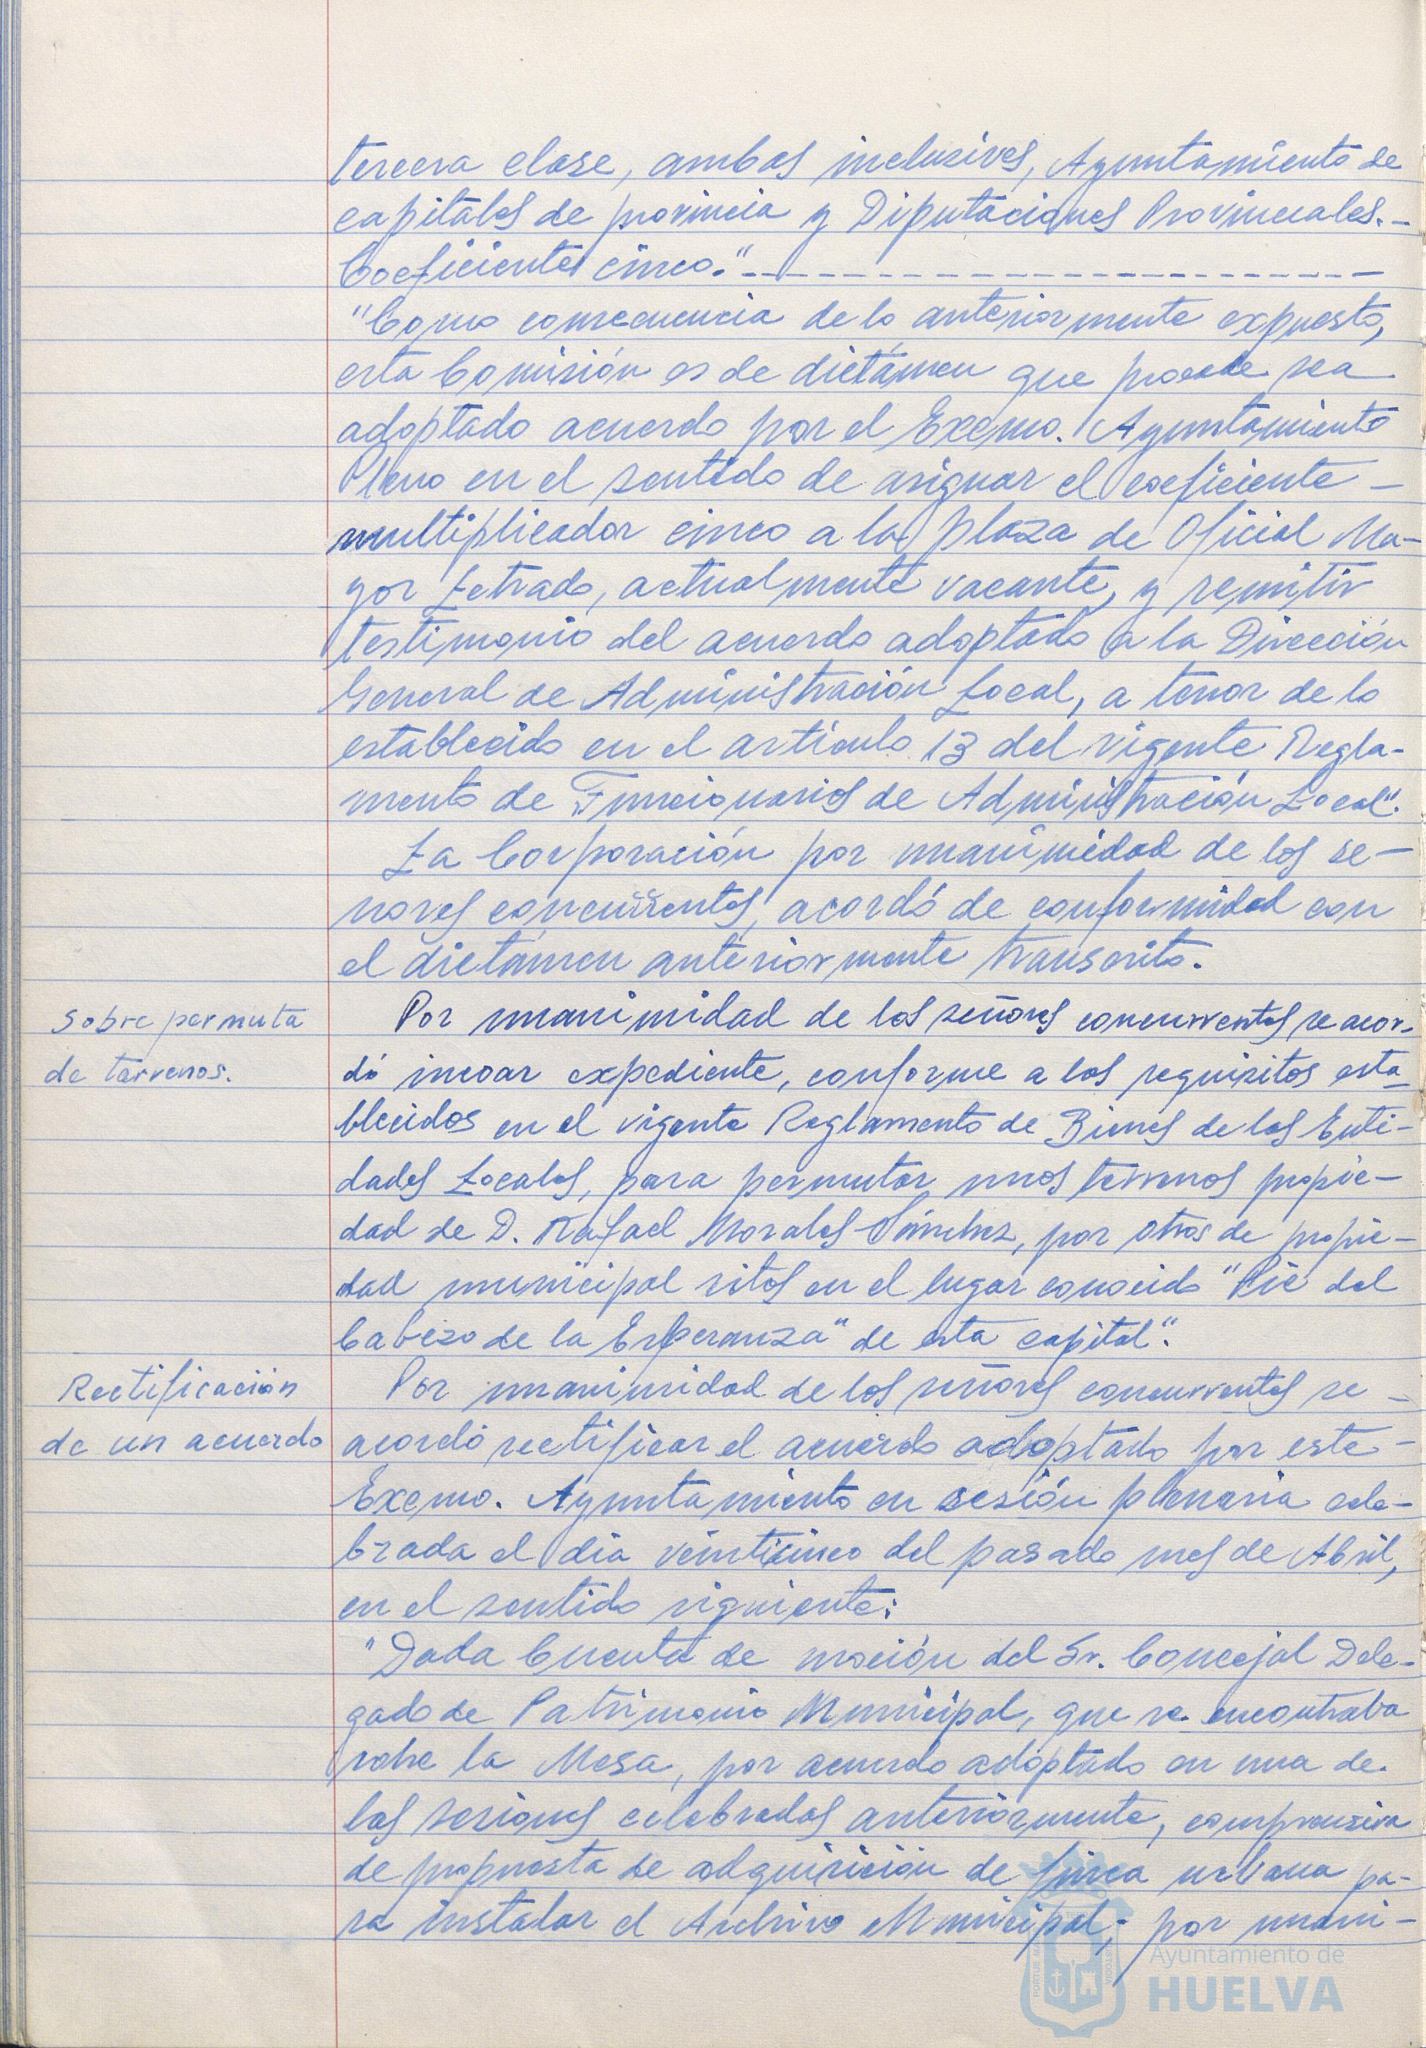 tercera clase, ambas inclusives, Ayuntamiento de
capitales de provincia y Diputaciones Provinciales.-
Coeficiente cinco."------------------------
"Como consecuencia de lo anteriormente expuesto,
esta Comisión es de dictámen que procede sea
adoptado acuerdo por el Excmo. Ayuntamiento
Pleno en el sentido de asignar el coeficiente -
multiplicador cinco a la plaza de Oficial Ma-
yor Letrado, actualmente vacante, y remitir
testimonio del acuerdo adoptado a la Dirección
General de Administración Local, a tenor de lo
establecido en el artículo 13 del vigente Regla-
mento de Funcionarios de Administración Local".
La Corporación por unanimidad de los se-
ñores concurrentes, acordó de conformidad con
el dictámen anteriormente transcrito.
Sobre permuta
de terrenos.
Por unanimidad de los señores concurrentes se acor-
dó incoar expediente, conforme a los requisitos esta-
blecidos en el vigente Reglamento de Bienes de las Enti-
dades Locales, para permutar unos terrenos propie-
dad de D. Rafael Morales Sánchez, por otros de propie-
dad municipal sitos en el lugar conocido "Pie del
Cabezo de la Esperanza" de esta capital".
Rectificación
de un acuerdo
Por unanimidad de los señores concurrentes se -
acordó rectificar el acuerdo adoptado por este -
Excmo. Ayuntamiento en sesión plenaria cele-
brada el dia veinticinco del pasado mes de Abril,
en el sentido siguiente:
"Dada Cuenta de moción del Sr. Concejal Dele-
gado de Patrimonio Municipal, que se encontraba
sobre la Mesa, por acuerdo adoptado en una de
las sesiones celebradas anteriormente, comprensiva
de propuesta de adquisición de finca urbana pa-
ra instalar el Archivo Municipal; por unani-
Ayuntamiento de
HUELVA